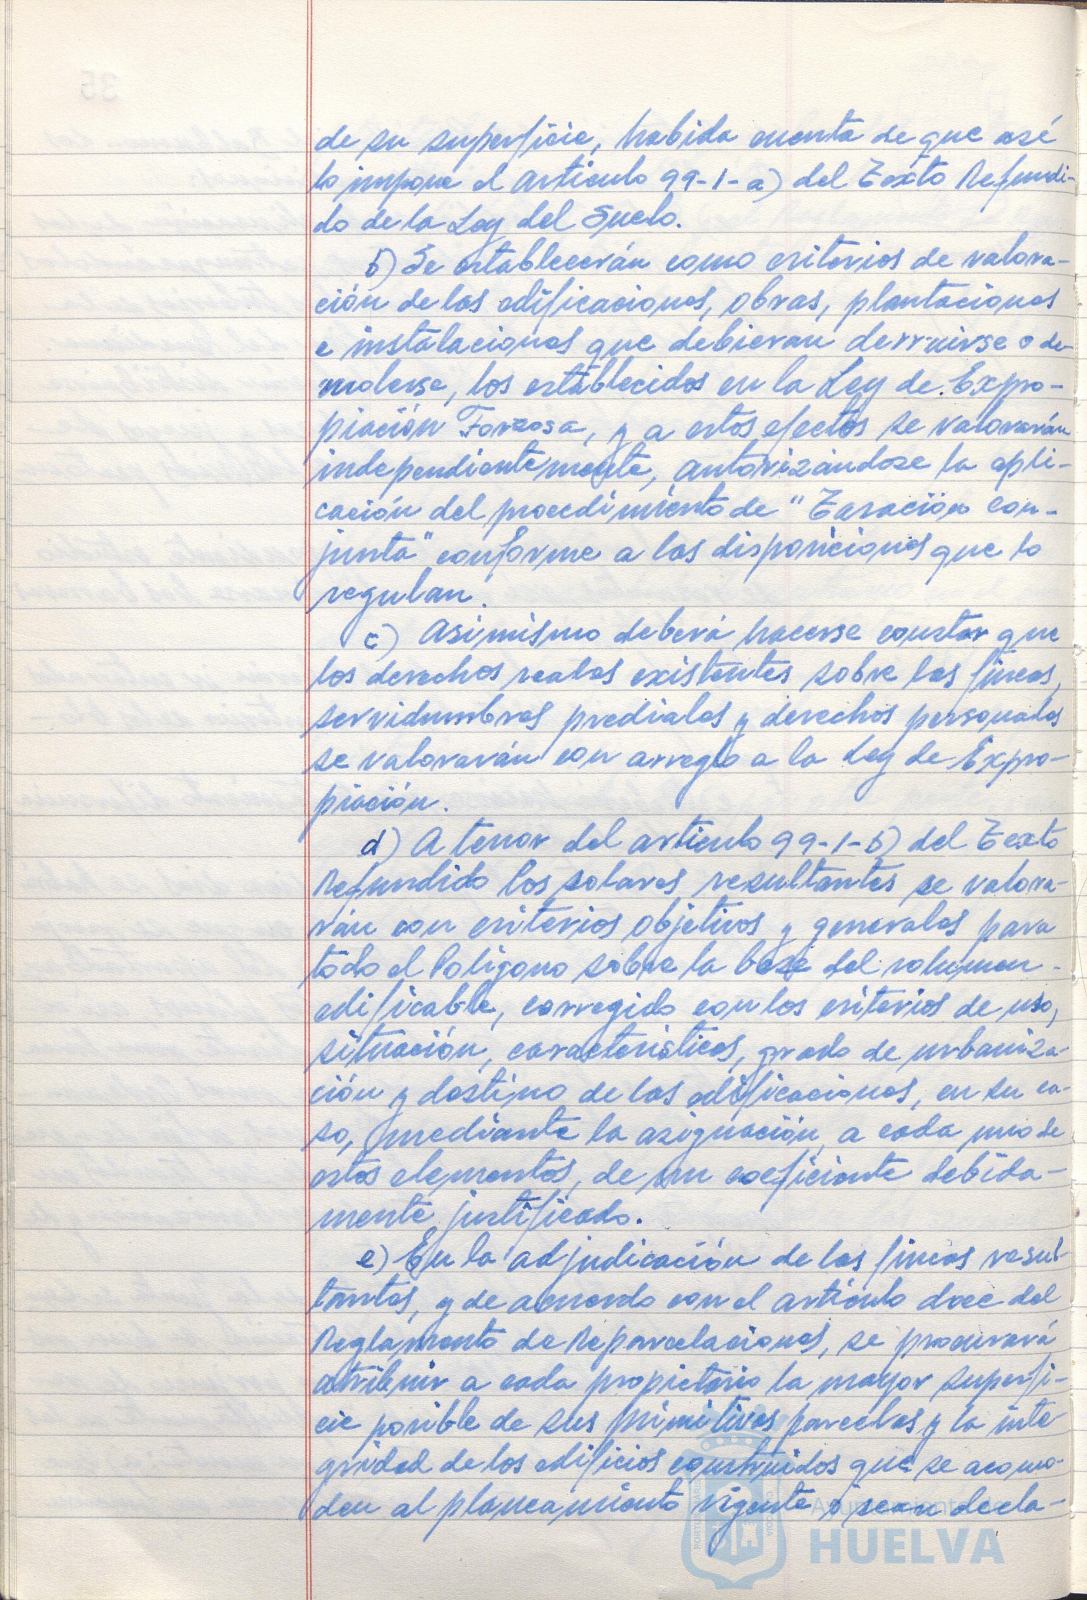 de su superficie, habida cuenta de que asi
lo impone el artículo 99-1-a) del Texto Refundi-
do de la Ley del Suelo.
b) Se establecerán como criterios de valora-
ción de las edificaciones, obras, plantaciones
e instalaciones que debieran derruirse o de-
molerse, los establecidos en la Ley de Expro-
piación Forzosa, y a estos efectos se valorarán
independientemente, autorizándose la apli-
cación del procedimiento de "Tasación con-
junta" conforme a las disposiciones que lo
regulan.
c) Asimismo deberá hacerse constar que
los derechos reales existentes sobre las fincas,
servidumbres prediales y derechos personales
se valorarán con arreglo a la Ley de Expro-
piación.
d) A tenor del artículo 99-1-b) del Texto
Refundido los solares resultantes se valora-
rán con criterios objetivos y generales para
todo el Polígono sobre la base del volumen
edificable, corregido con los criterios de uso,
situación, características, grado de urbaniza-
ción y destino de las edificaciones, en su ca-
so, mediante la asignación, a cada uno de
estos elementos, de un coeficiente debida-
mente justificado.
e) En la adjudicación de las fincas resul-
tantes, y de acuerdo con el artículo doce del
Reglamento de Reparcelaciones, se procurará
atribuir a cada propietario la mayor superfi-
cie posible de sus primitivas parcelas y la inte
gridad de los edificios construidos que se acomo-
den al planeamiento vigente o sean decla-
Ayuntamiento de
HUELVA